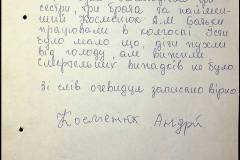 сестри, три брата, та наймен-
ший Косменюк А.М. Батьки
працювали в колгоспі. Їсти
було мало що, діти пухли
від голоду, але вижили.
Смертельних випадків не було.
Зі слів очевидця записано вірно.
Косменюк Андрій